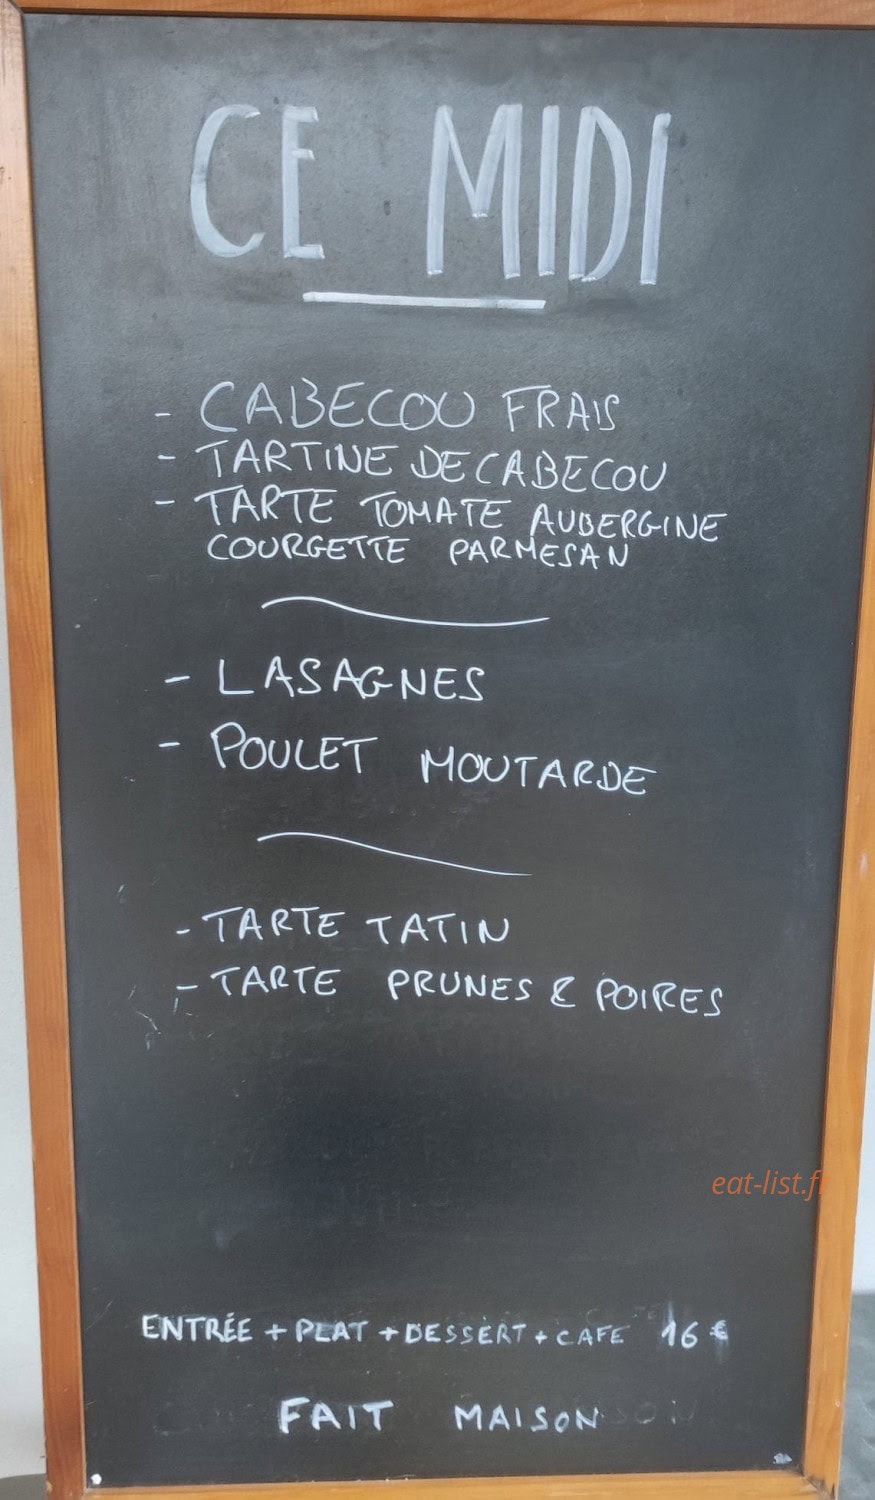 CE MIDI
- CABECOU FRAIS
- TARTINE DE CABECOU
- TARTE TOMATE AUBERGINE
COURGETTE PARMESAN
- LASAGNES
- POULET MOUTARDE
- TARTE TATIN
- TARTE PRUNES & POIRES
eat-list.fr
ENTRÉE + PLAT + DESSERT + CAFE 16 €
FAIT MAISON